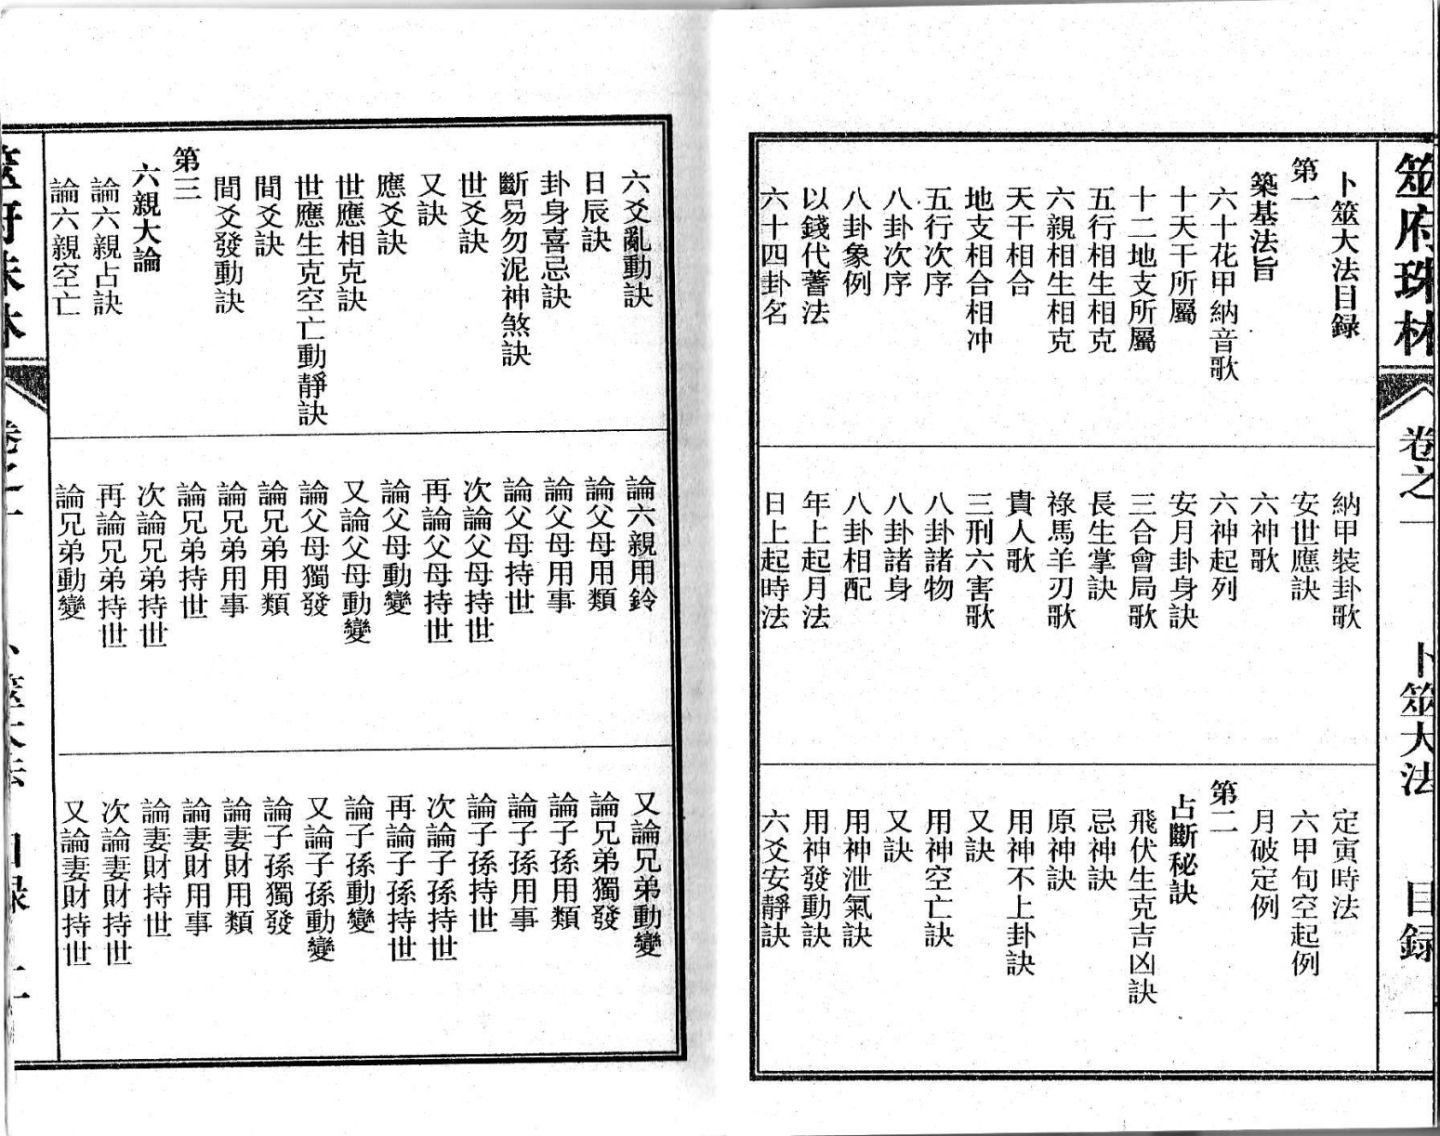 筮府珠林
卷之一
卜筮大法
目録
一
卜筮大法目録
第一
築基法旨
六十花甲納音歌
十天干所屬
十二地支所屬
五行相生相克
六親相生相克
天干相合
地支相合相冲
五行次序
八卦次序
八卦象例
以錢代蓍法
六十四卦名
納甲裝卦歌
安世應訣
六神歌
六神起列
安月卦身訣
三合會局歌
長生掌訣
祿馬羊刃歌
貴人歌
三刑六害歌
八卦諸物
八卦諸身
八卦相配
年上起月法
日上起時法
定寅時法
六甲旬空起例
月破定例
第二
占斷秘訣
飛伏生克吉凶訣
忌神訣
原神訣
用神不上卦訣
又訣
用神空亡訣
又訣
用神泄氣訣
用神發動訣
六爻安靜訣
六爻亂動訣
日辰訣
卦身喜忌訣
斷易勿泥神煞訣
世爻訣
又訣
應爻訣
世應相克訣
世應生克空亡動靜訣
間爻訣
間爻發動訣
第三
六親大論
論六親占訣
論六親空亡
論六親用鈴
論父母用類
論父母用事
論父母持世
次論父母持世
再論父母持世
論父母動變
又論父母動變
論父母獨發
論兄弟用類
論兄弟用事
論兄弟持世
次論兄弟持世
再論兄弟持世
論兄弟動變
又論兄弟動變
論兄弟獨發
論子孫用類
論子孫用事
論子孫持世
次論子孫持世
再論子孫持世
論子孫動變
又論子孫動變
論子孫獨發
論妻財用類
論妻財用事
論妻財持世
次論妻財持世
又論妻財持世